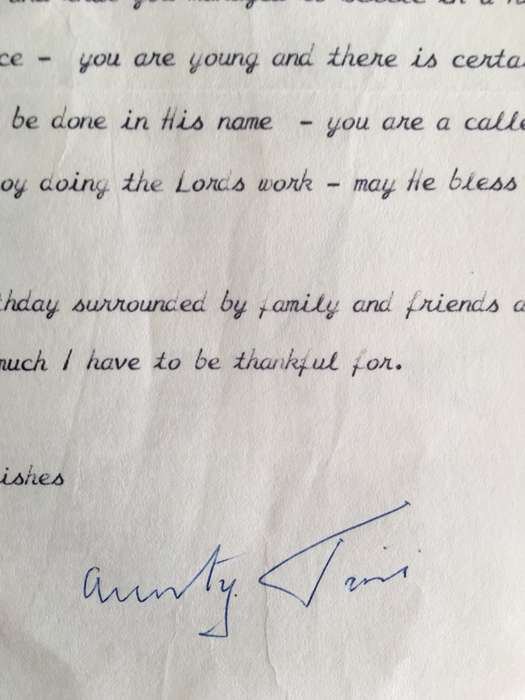 that you managed to settle in a
ce - you are young and there is certa
be done in His name - you are a calle
oy doing the Lords work - may He bless
thday surrounded by family and friends a
much I have to be thankful for.
ishes
Aunty Tini